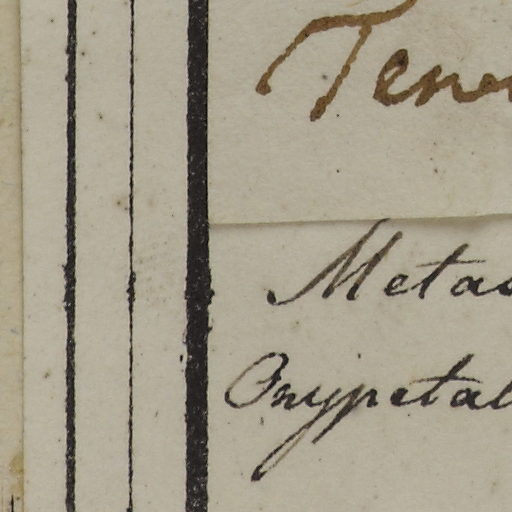 Tene
Metas
Onypetal